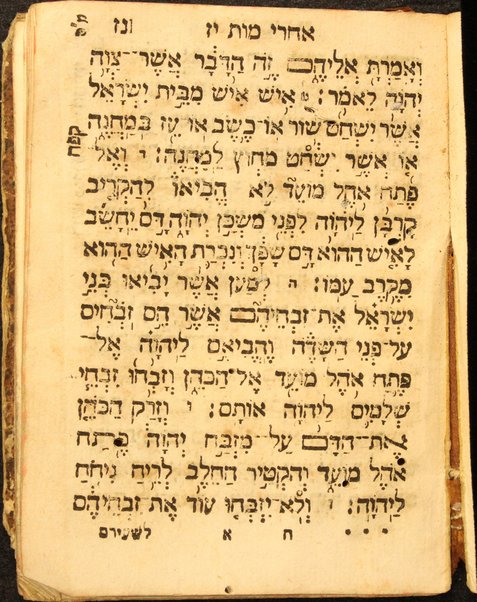 אחרי מות יז ונז
וְאָמַרְתָּ אֲלֵיהֶם זֶה הַדָּבָר אֲשֶׁר־צִוָּה
יְהוָה לֵאמֹר׃ אִישׁ אִישׁ מִבֵּית יִשְׂרָאֵל
אֲשֶׁר יִשְׁחַט שׁוֹר אוֹ־כֶשֶׂב אוֹ־עֵז בַּמַּחֲנֶה
אוֹ אֲשֶׁר יִשְׁחַט מִחוּץ לַמַּחֲנֶה׃ וְאֶל
פֶּתַח אֹהֶל מוֹעֵד לֹא הֱבִיאוֹ לְהַקְרִיב
קָרְבָּן לַיהוָה לִפְנֵי מִשְׁכַּן יְהוָה דָּם יֵחָשֵׁב
לָאִישׁ הַהוּא דָּם שָׁפָךְ וְנִכְרַת הָאִישׁ הַהוּא
מִקֶּרֶב עַמּוֹ׃ לְמַעַן אֲשֶׁר יָבִיאוּ בְּנֵי
יִשְׂרָאֵל אֶת־זִבְחֵיהֶם אֲשֶׁר הֵם זֹבְחִים
עַל־פְּנֵי הַשָּׂדֶה וֶהֱבִיאֻם לַיהוָה אֶל־
פֶּתַח אֹהֶל מוֹעֵד אֶל־הַכֹּהֵן וְזָבְחוּ זִבְחֵי
שְׁלָמִים לַיהוָה אוֹתָם׃ וְזָרַק הַכֹּהֵן
אֶת־הַדָּם עַל־מִזְבַּח יְהוָה פֶּתַח
אֹהֶל מוֹעֵד וְהִקְטִיר הַחֵלֶב לְרֵיחַ נִיחֹחַ
לַיהוָה׃ וְלֹא־יִזְבְּחוּ עוֹד אֶת־זִבְחֵיהֶם
ח א לשעירם
קפח